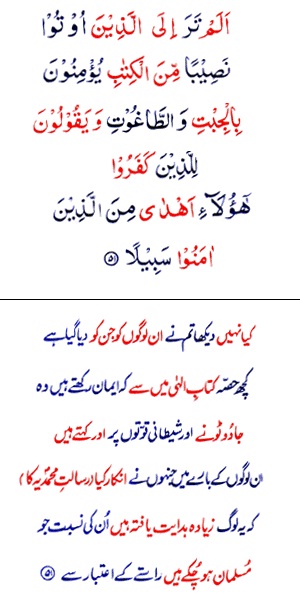 اَلَمْ تَرَ اِلَى الَّذِيْنَ اُوْتُوْا
نَصِيْبًا مِّنَ الْكِتٰبِ يُؤْمِنُوْنَ
بِالْجِبْتِ وَ الطَّاغُوْتِ وَ يَقُوْلُوْنَ
لِلَّذِيْنَ كَفَرُوْا
هٰۤؤُلَآءِ اَهْدٰى مِنَ الَّذِيْنَ
اٰمَنُوْا سَبِيْلًا ۵۱
کیا نہیں دیکھا تم نے ان لوگوں کو جن کو دیا گیا ہے
کچھ حصّہ کتابِ الٰہی میں سے کہ ایمان رکھتے ہیں وہ
جادُو ٹونے اور شیطانی قوّتوں پر اور کہتے ہیں
ان لوگوں کے بارے میں جنہوں نے انکار کیا (رسالتِ محمدؐیہ کا)
کہ یہ لوگ زیادہ ہدایت یافتہ ہیں اُن کی نسبت جو
مُسلمان ہو چُکے ہیں راستے کے اعتبار سے ۵۱